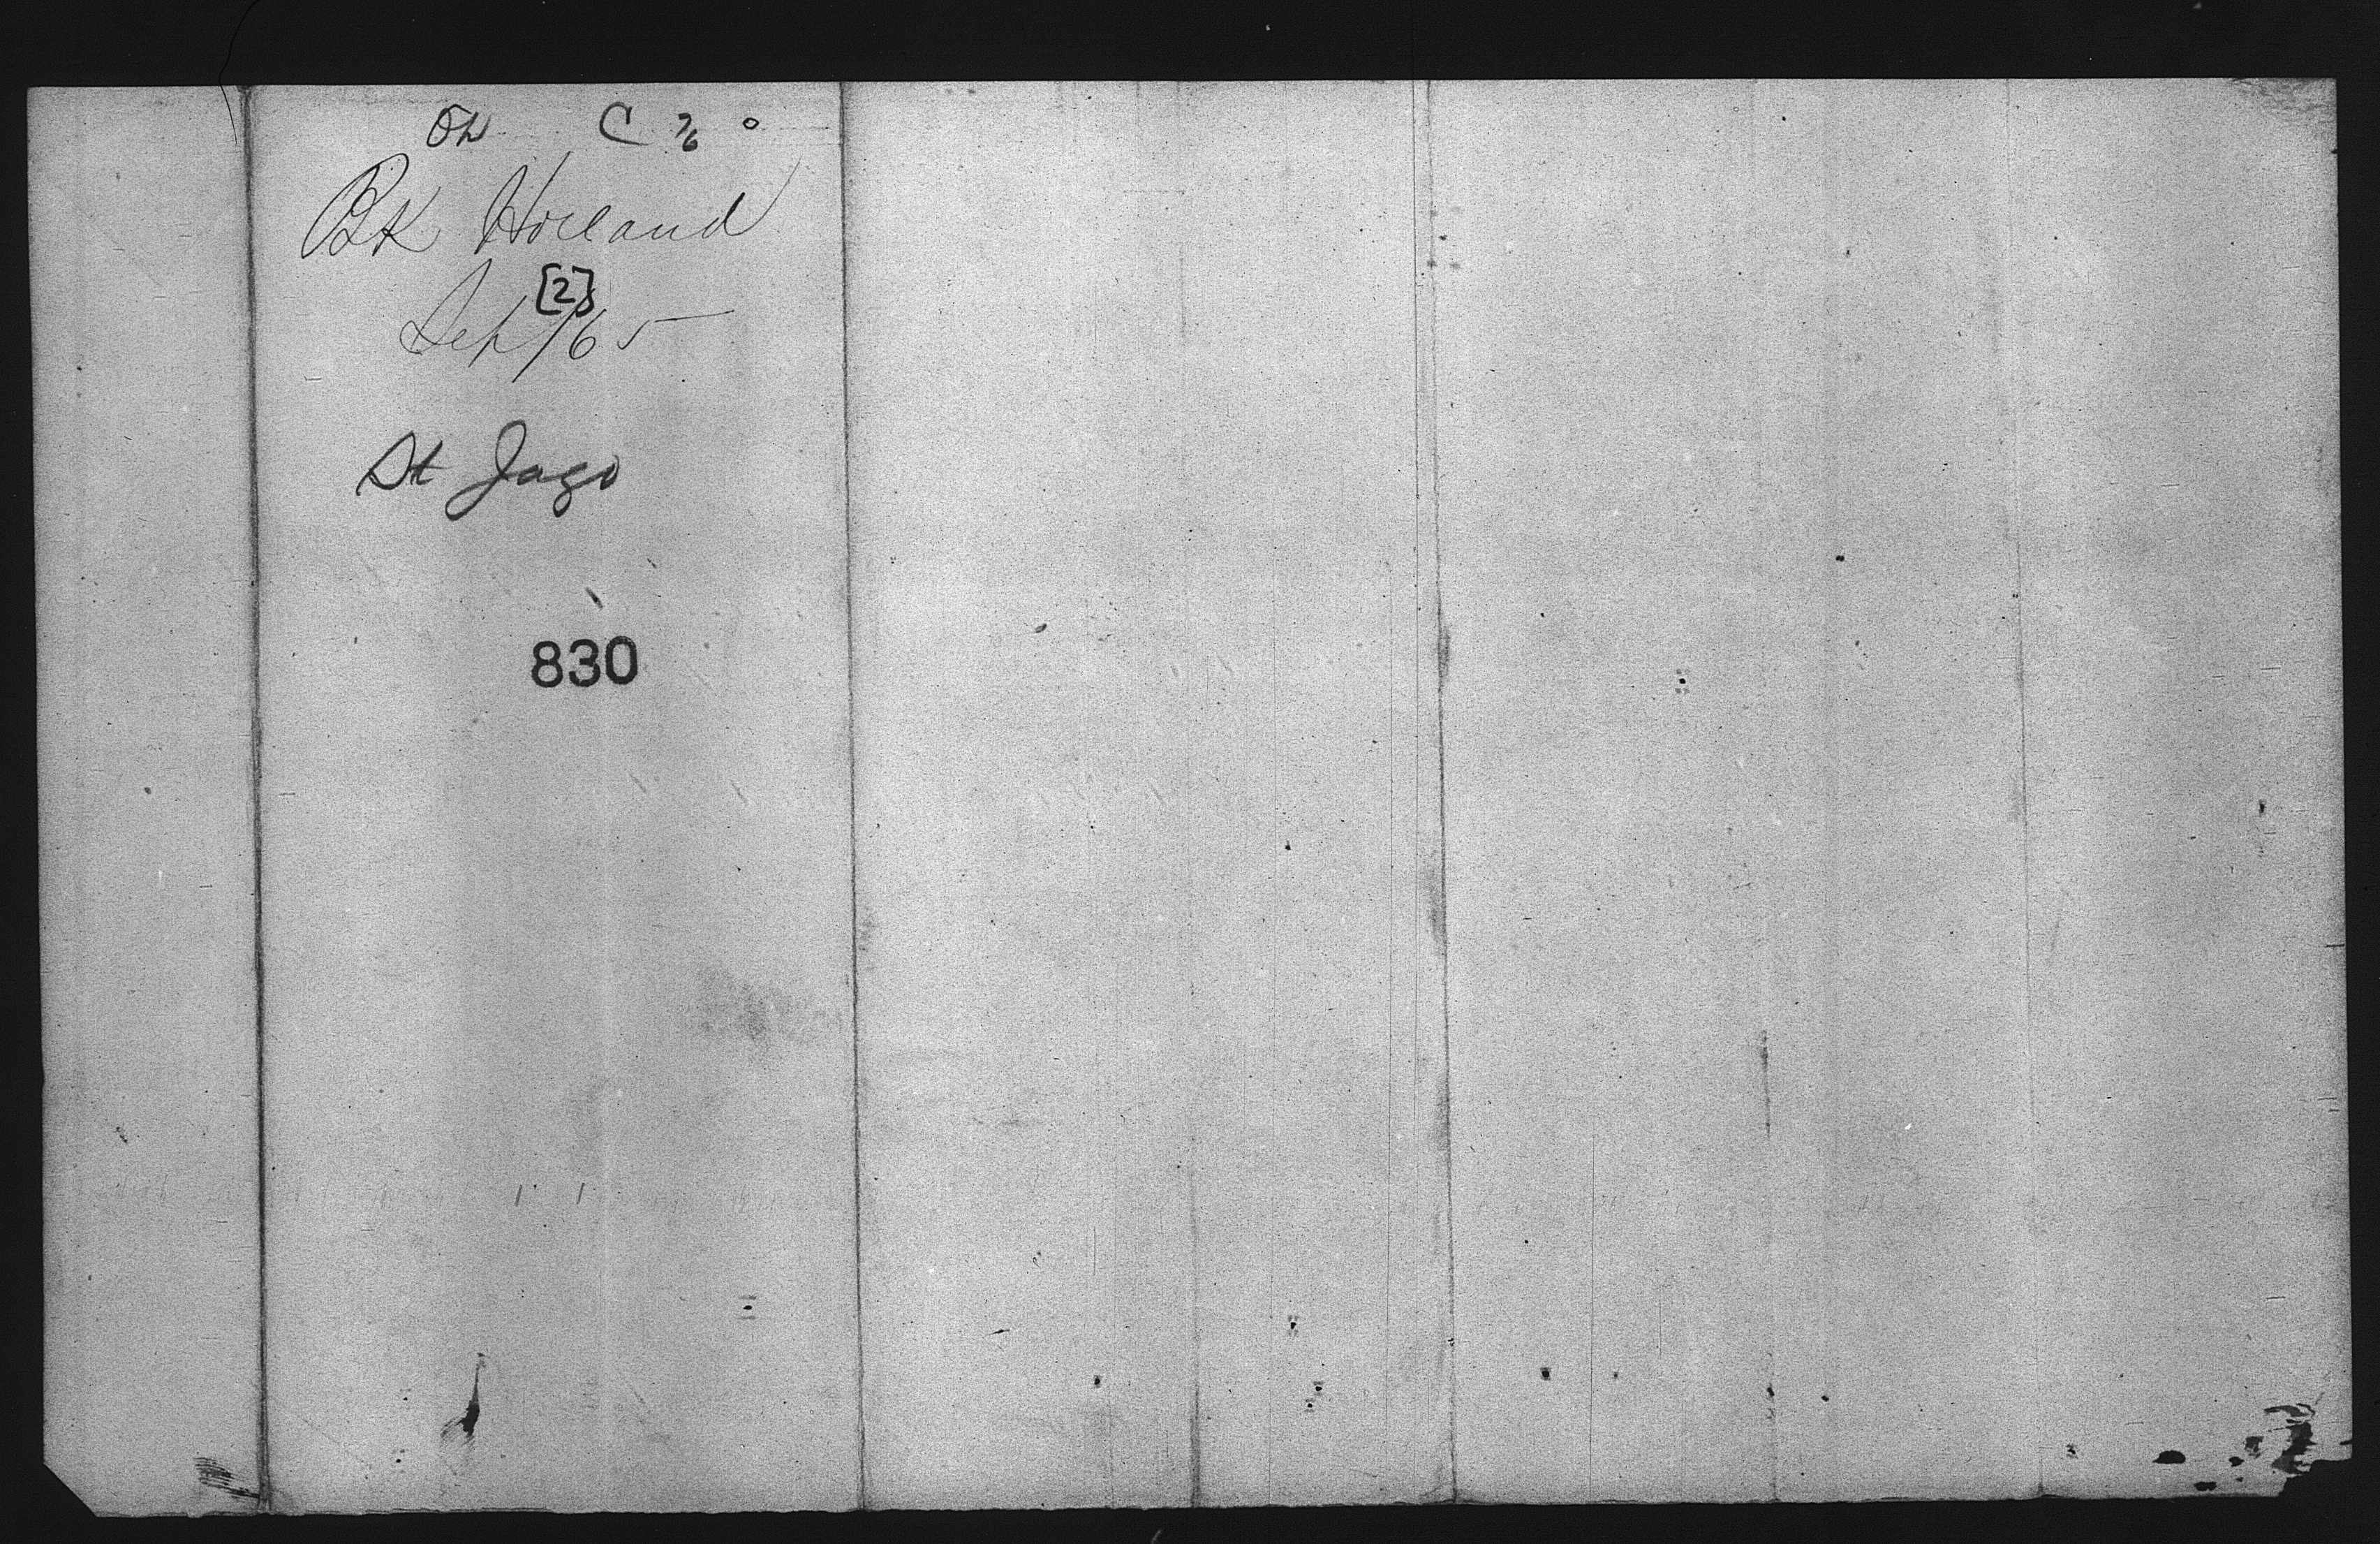 C 7/6 o
Bk Holland
[2]
Sep/65
St Jago
830